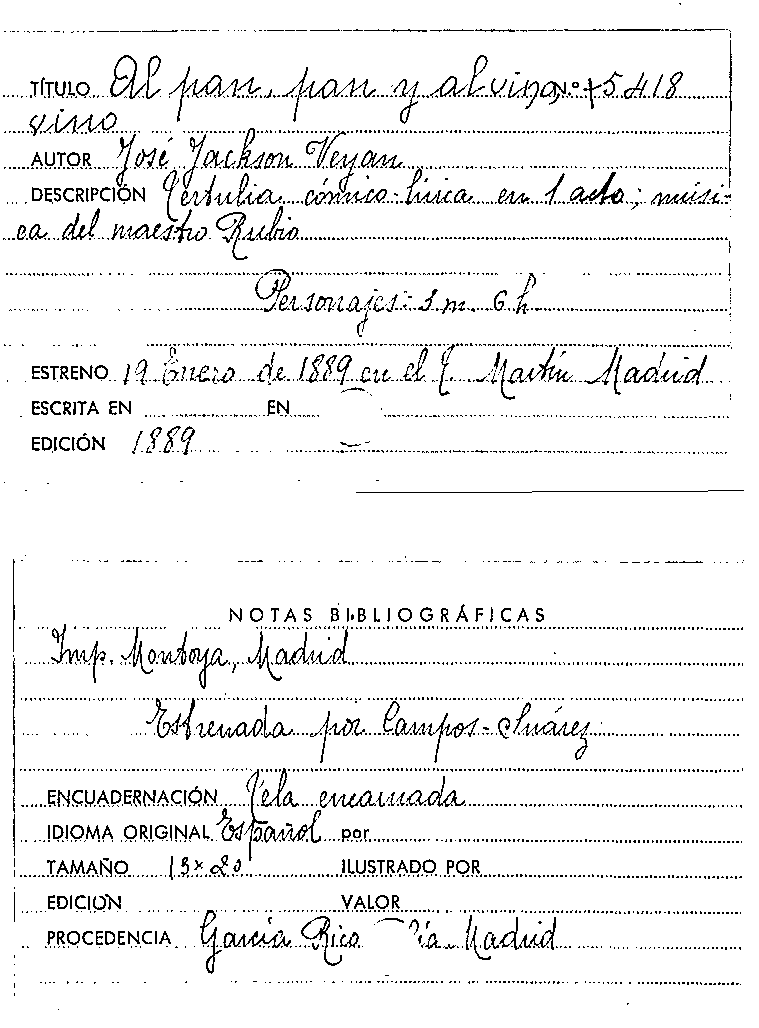 TÍTULO Al pan, pan y al vino, N.º 45418
vino
AUTOR José Jackson Veyan
DESCRIPCIÓN Tertulia cómico-lírica en 1 acto; músi-
ca del maestro Rubio
Personajes: 3 m. 6 h
ESTRENO 19 Enero de 1889 en el T. Martín Madrid
ESCRITA EN EN
EDICIÓN 1889
NOTAS BIBLIOGRÁFICAS
Imp. Montoya, Madrid
Estrenada por Campos-Suárez
ENCUADERNACIÓN Tela encarnada
IDIOMA ORIGINAL Español por
TAMAÑO 13 x 20 ILUSTRADO POR
EDICION VALOR
PROCEDENCIA García Rico Cía. Madrid